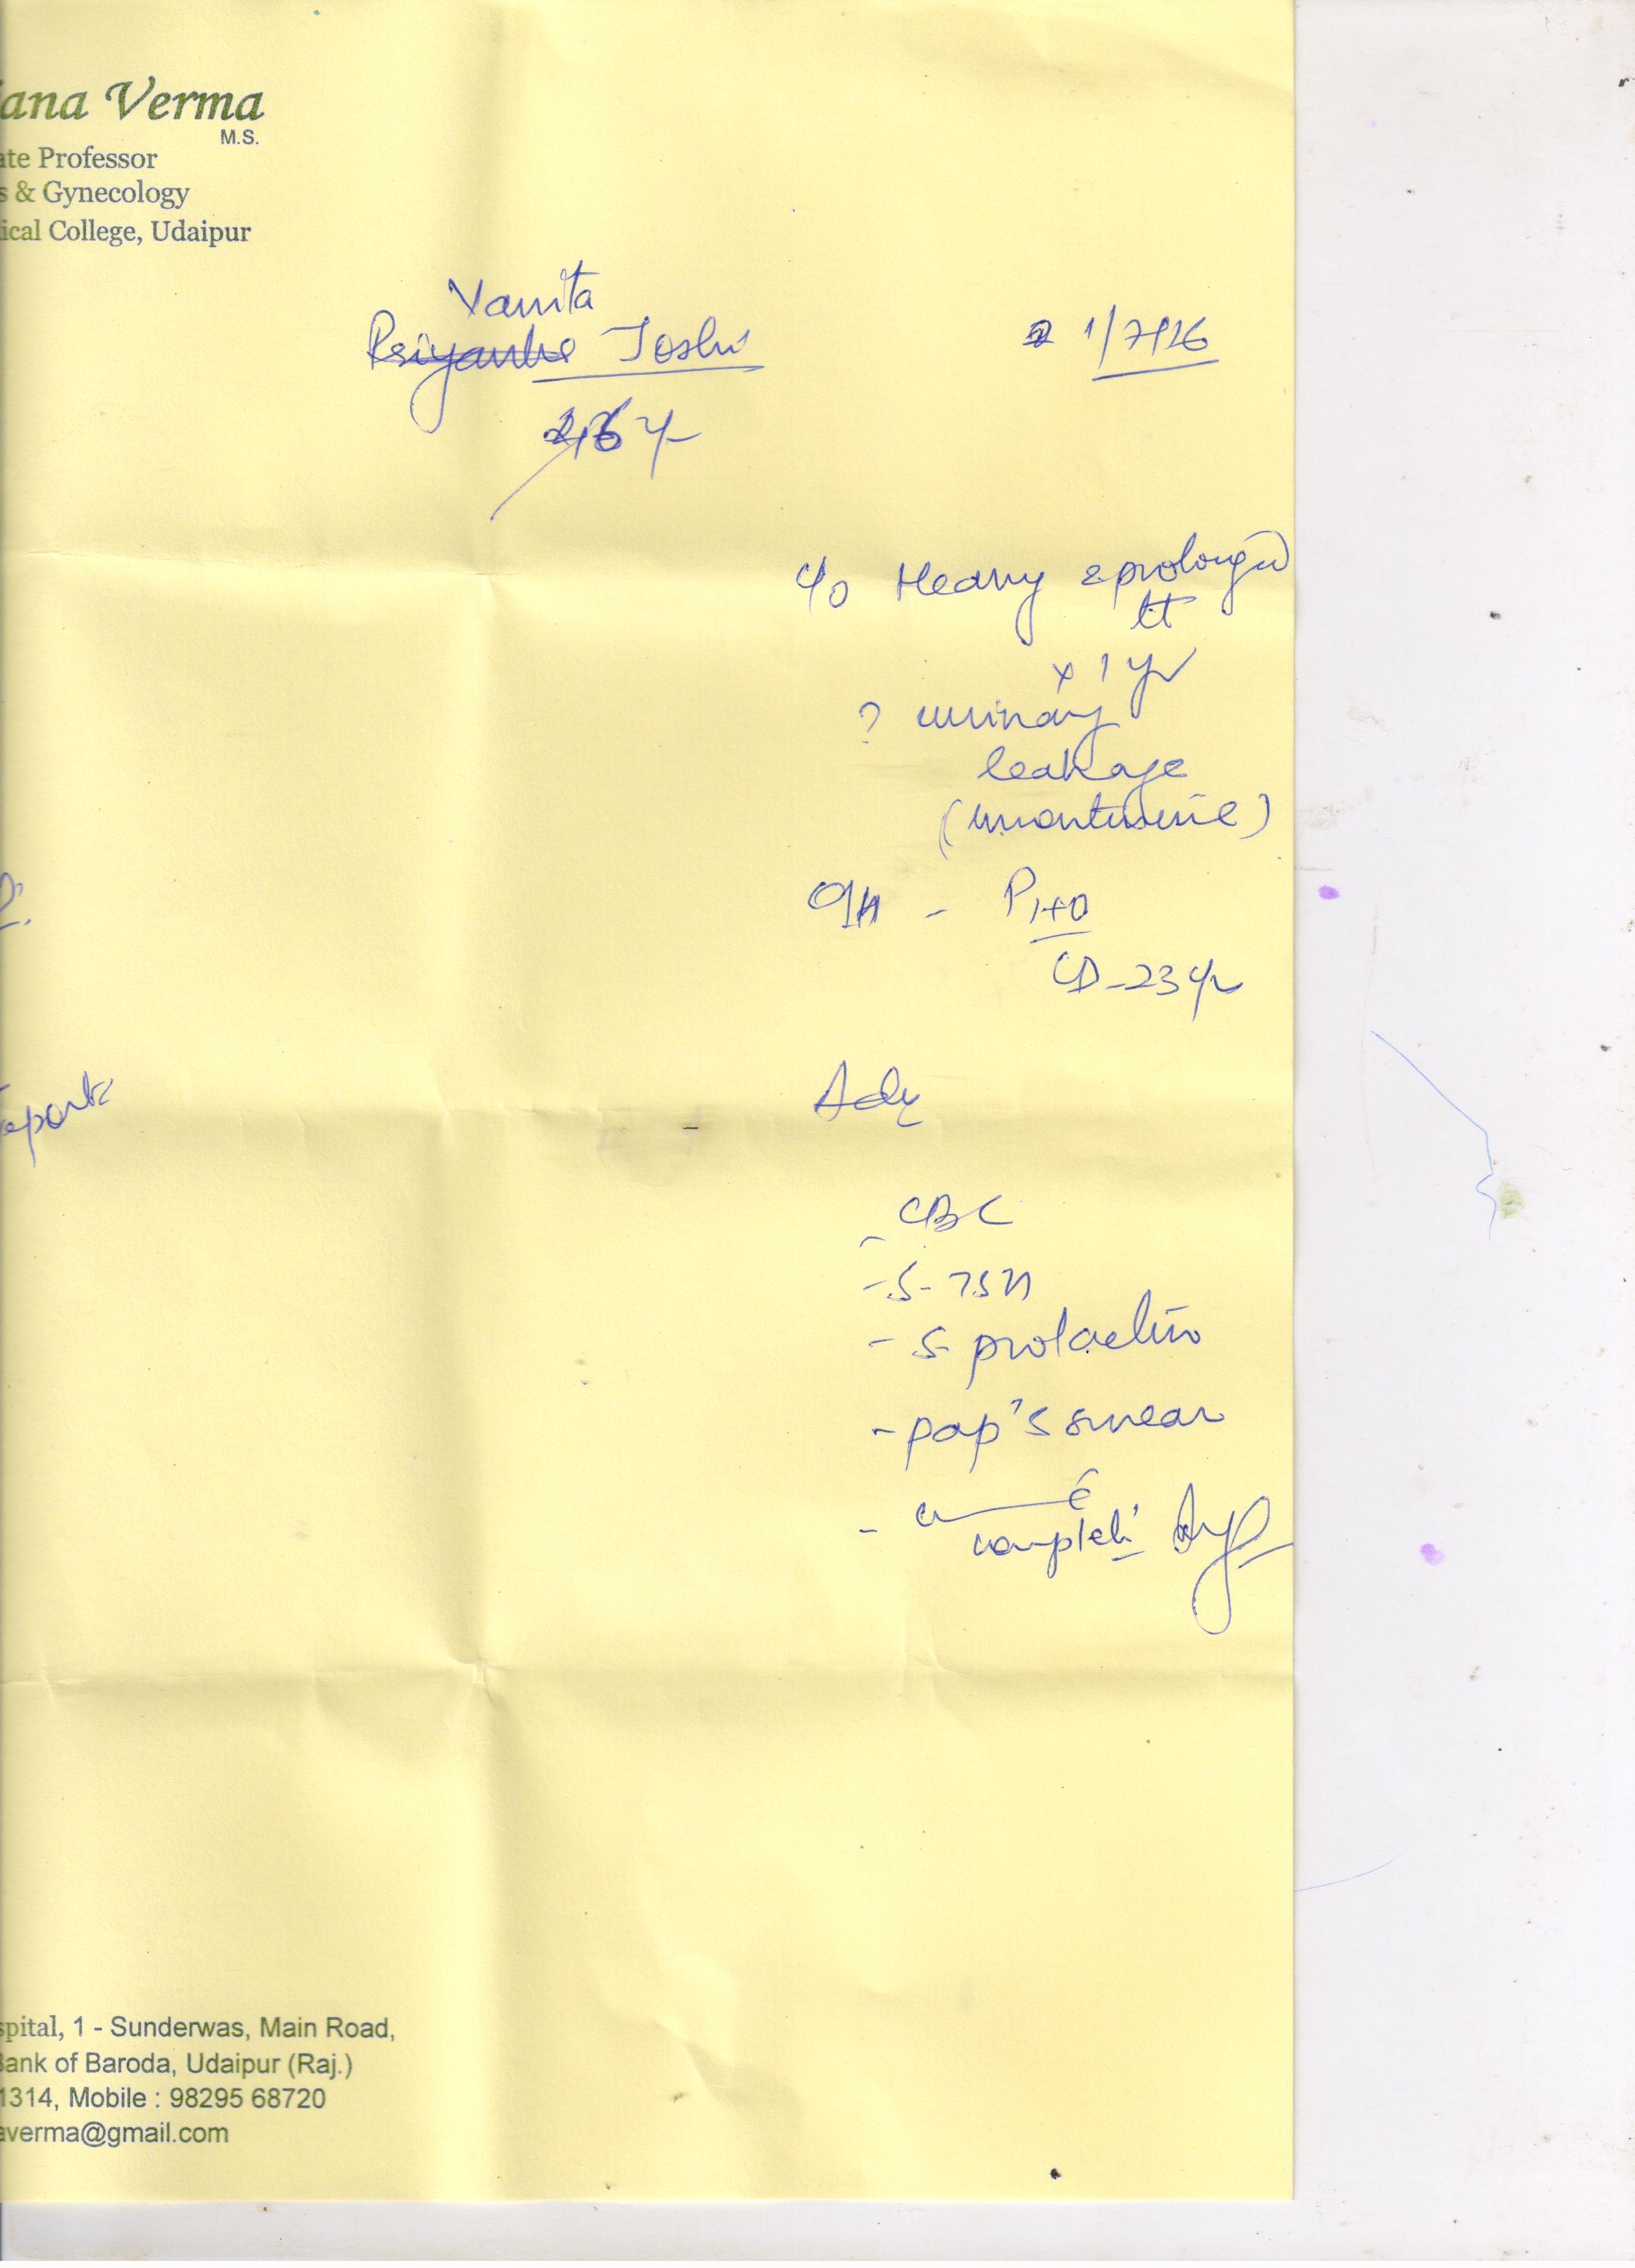 ana Verma
M.S.
ate Professor
s & Gynecology
ical College, Udaipur
Vanita
Priyanka Joshi
1/7/26
46 Y
c/o Heavy & prolonged
x 1 yr
? urinary
leakage
O/H - P1+0
CD - 23 yr
eports
Adv
- CBC
- S. TSH
- S. prolactin
- pap's smear
- c̄
complete
spital, 1 - Sunderwas, Main Road,
Bank of Baroda, Udaipur (Raj.)
1314, Mobile : 98295 68720
averma@gmail.com